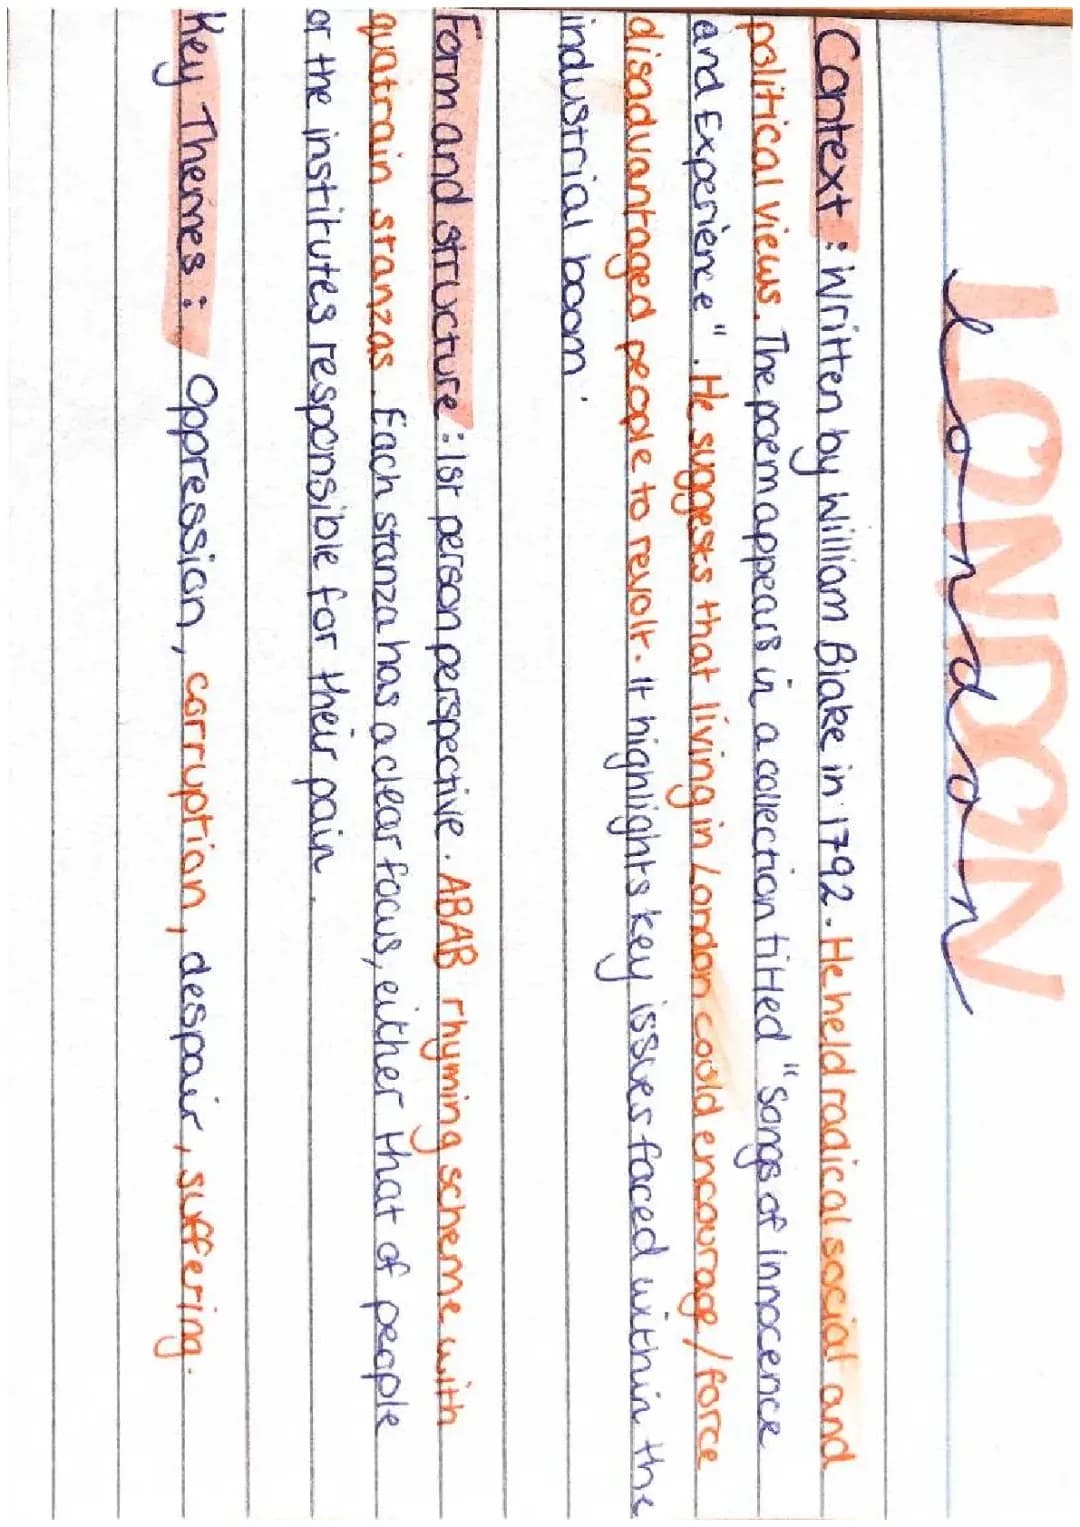 LONDON
London
Context : Written by William Blake in 1792. He held radical social and
political views. The poem appears in a collection titled "Songs of Innocence
and Experience". He suggests that living in London could encourage / force
disadvantaged people to revolt. It highlights key issues faced within the
industrial boom.
Form and structure : 1st person perspective. ABAB rhyming scheme with
quatrain stanzas. Each stanza has a clear focus, either that of people
or the institutes responsible for their pain.
Key Themes : Oppression, corruption, despair, suffering.